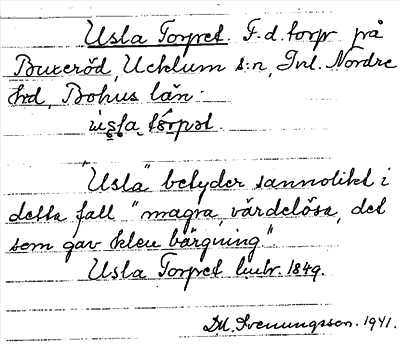 Usla Torpet. F.d. torp på
Buxeröd, Ucklum s:n, Inl. Nordre
hrd, Bohus län.
ùsla tórpət.
"Usla" betyder sannolikt i
detta fall "magra, värdelösa, det
som gav klen bärgning".
Usla Torpet 1849.
D.M. Svenungsson. 1941.